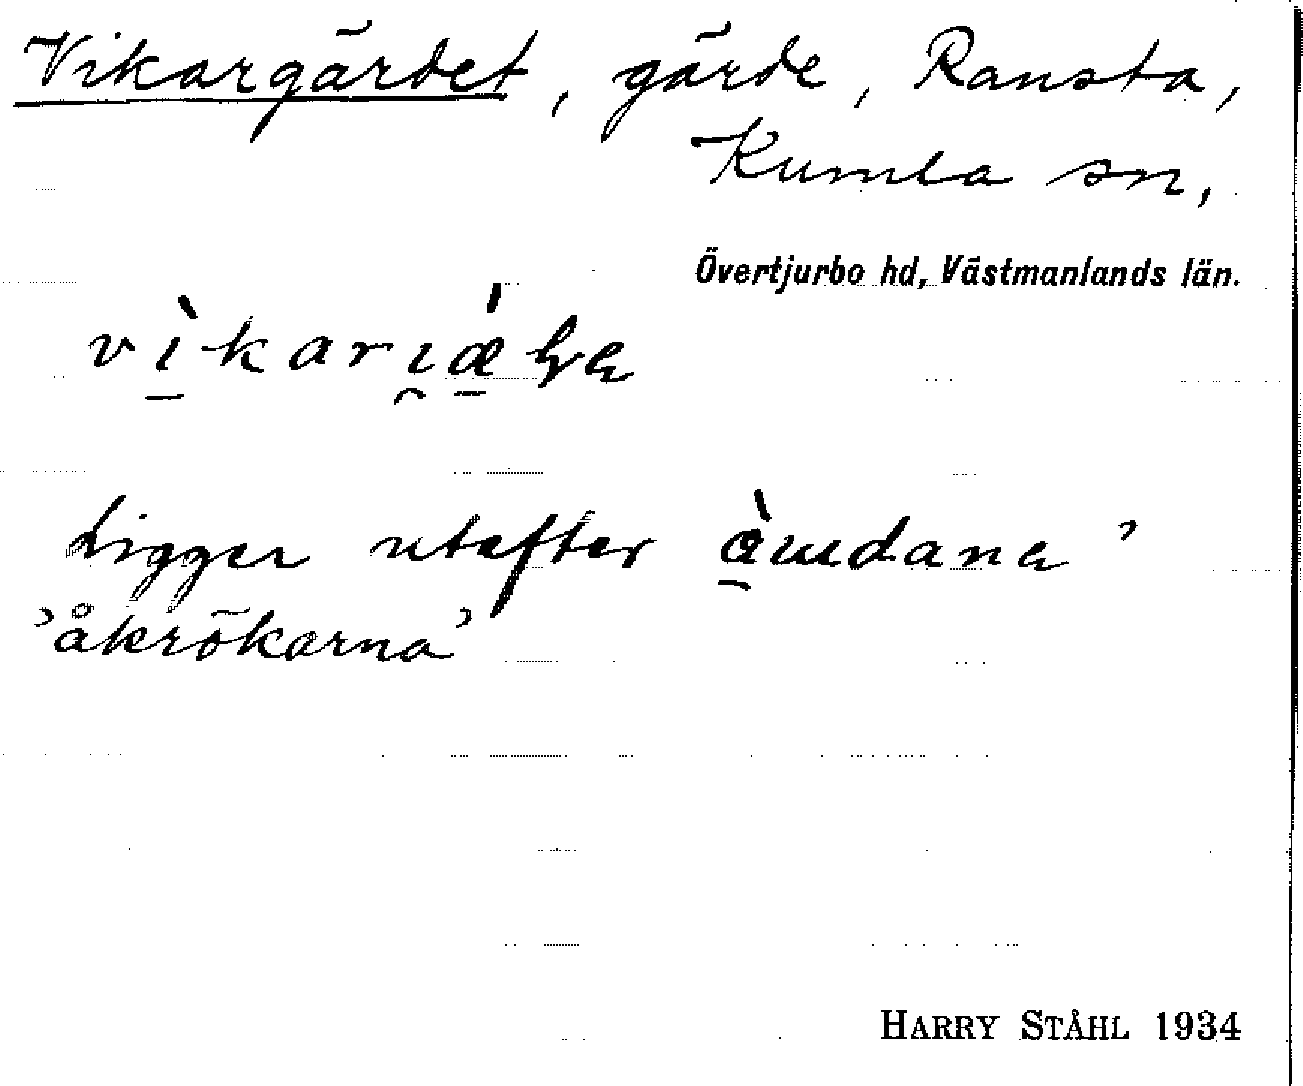 Vikargärdet, gärde, Ransta,
Kumla sn,
Övertjurbo hd, Västmanlands län.
Ligger utefter
'åkrökarna'
HARRY STÅHL 1934